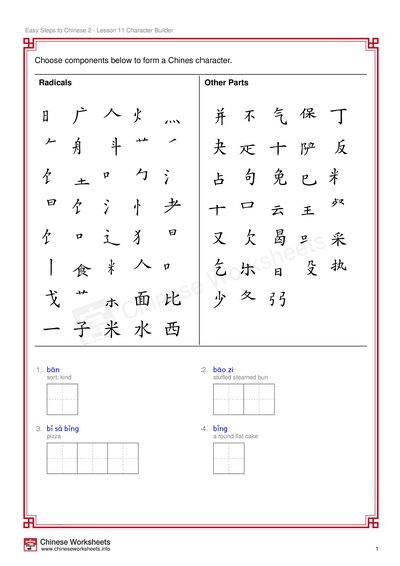 Easy Steps to Chinese 2 - Lesson 11 Character Builder
Choose components below to form a Chines character.
Radicals
日 广 人 火 灬
𠂉 舟 斗 艹 ㇒
饣 土 口 勹 氵
日 饣 氵 忄 耂
饣 口 辶 犭 日
丨 食 米 人 口
戈 䒑 木 面 比
一 子 米 水 西
Other Parts
并 不 气 保 丁
夬 疋 十 阼 反
占 句 免 巳 米
十 口 云 王
又 欠 曷 采
乞 乐 日 殳 执
少 夂 弱
Chinese Worksheets
1. bān
sort; kind
2. bāo zi
stuffed steamed bun
3. bǐ sà bǐng
pizza
4. bǐng
a round flat cake
Chinese Worksheets
www.chineseworksheets.info
1